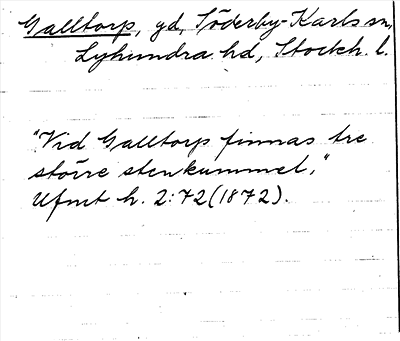 Galltorp, gd, Söderby-Karls sn,
Lyhundra hd, Stockh. l.
"Vid Galltorp finnas tre
större stenkummel,"
Ufmt h. 2:72 (1872).